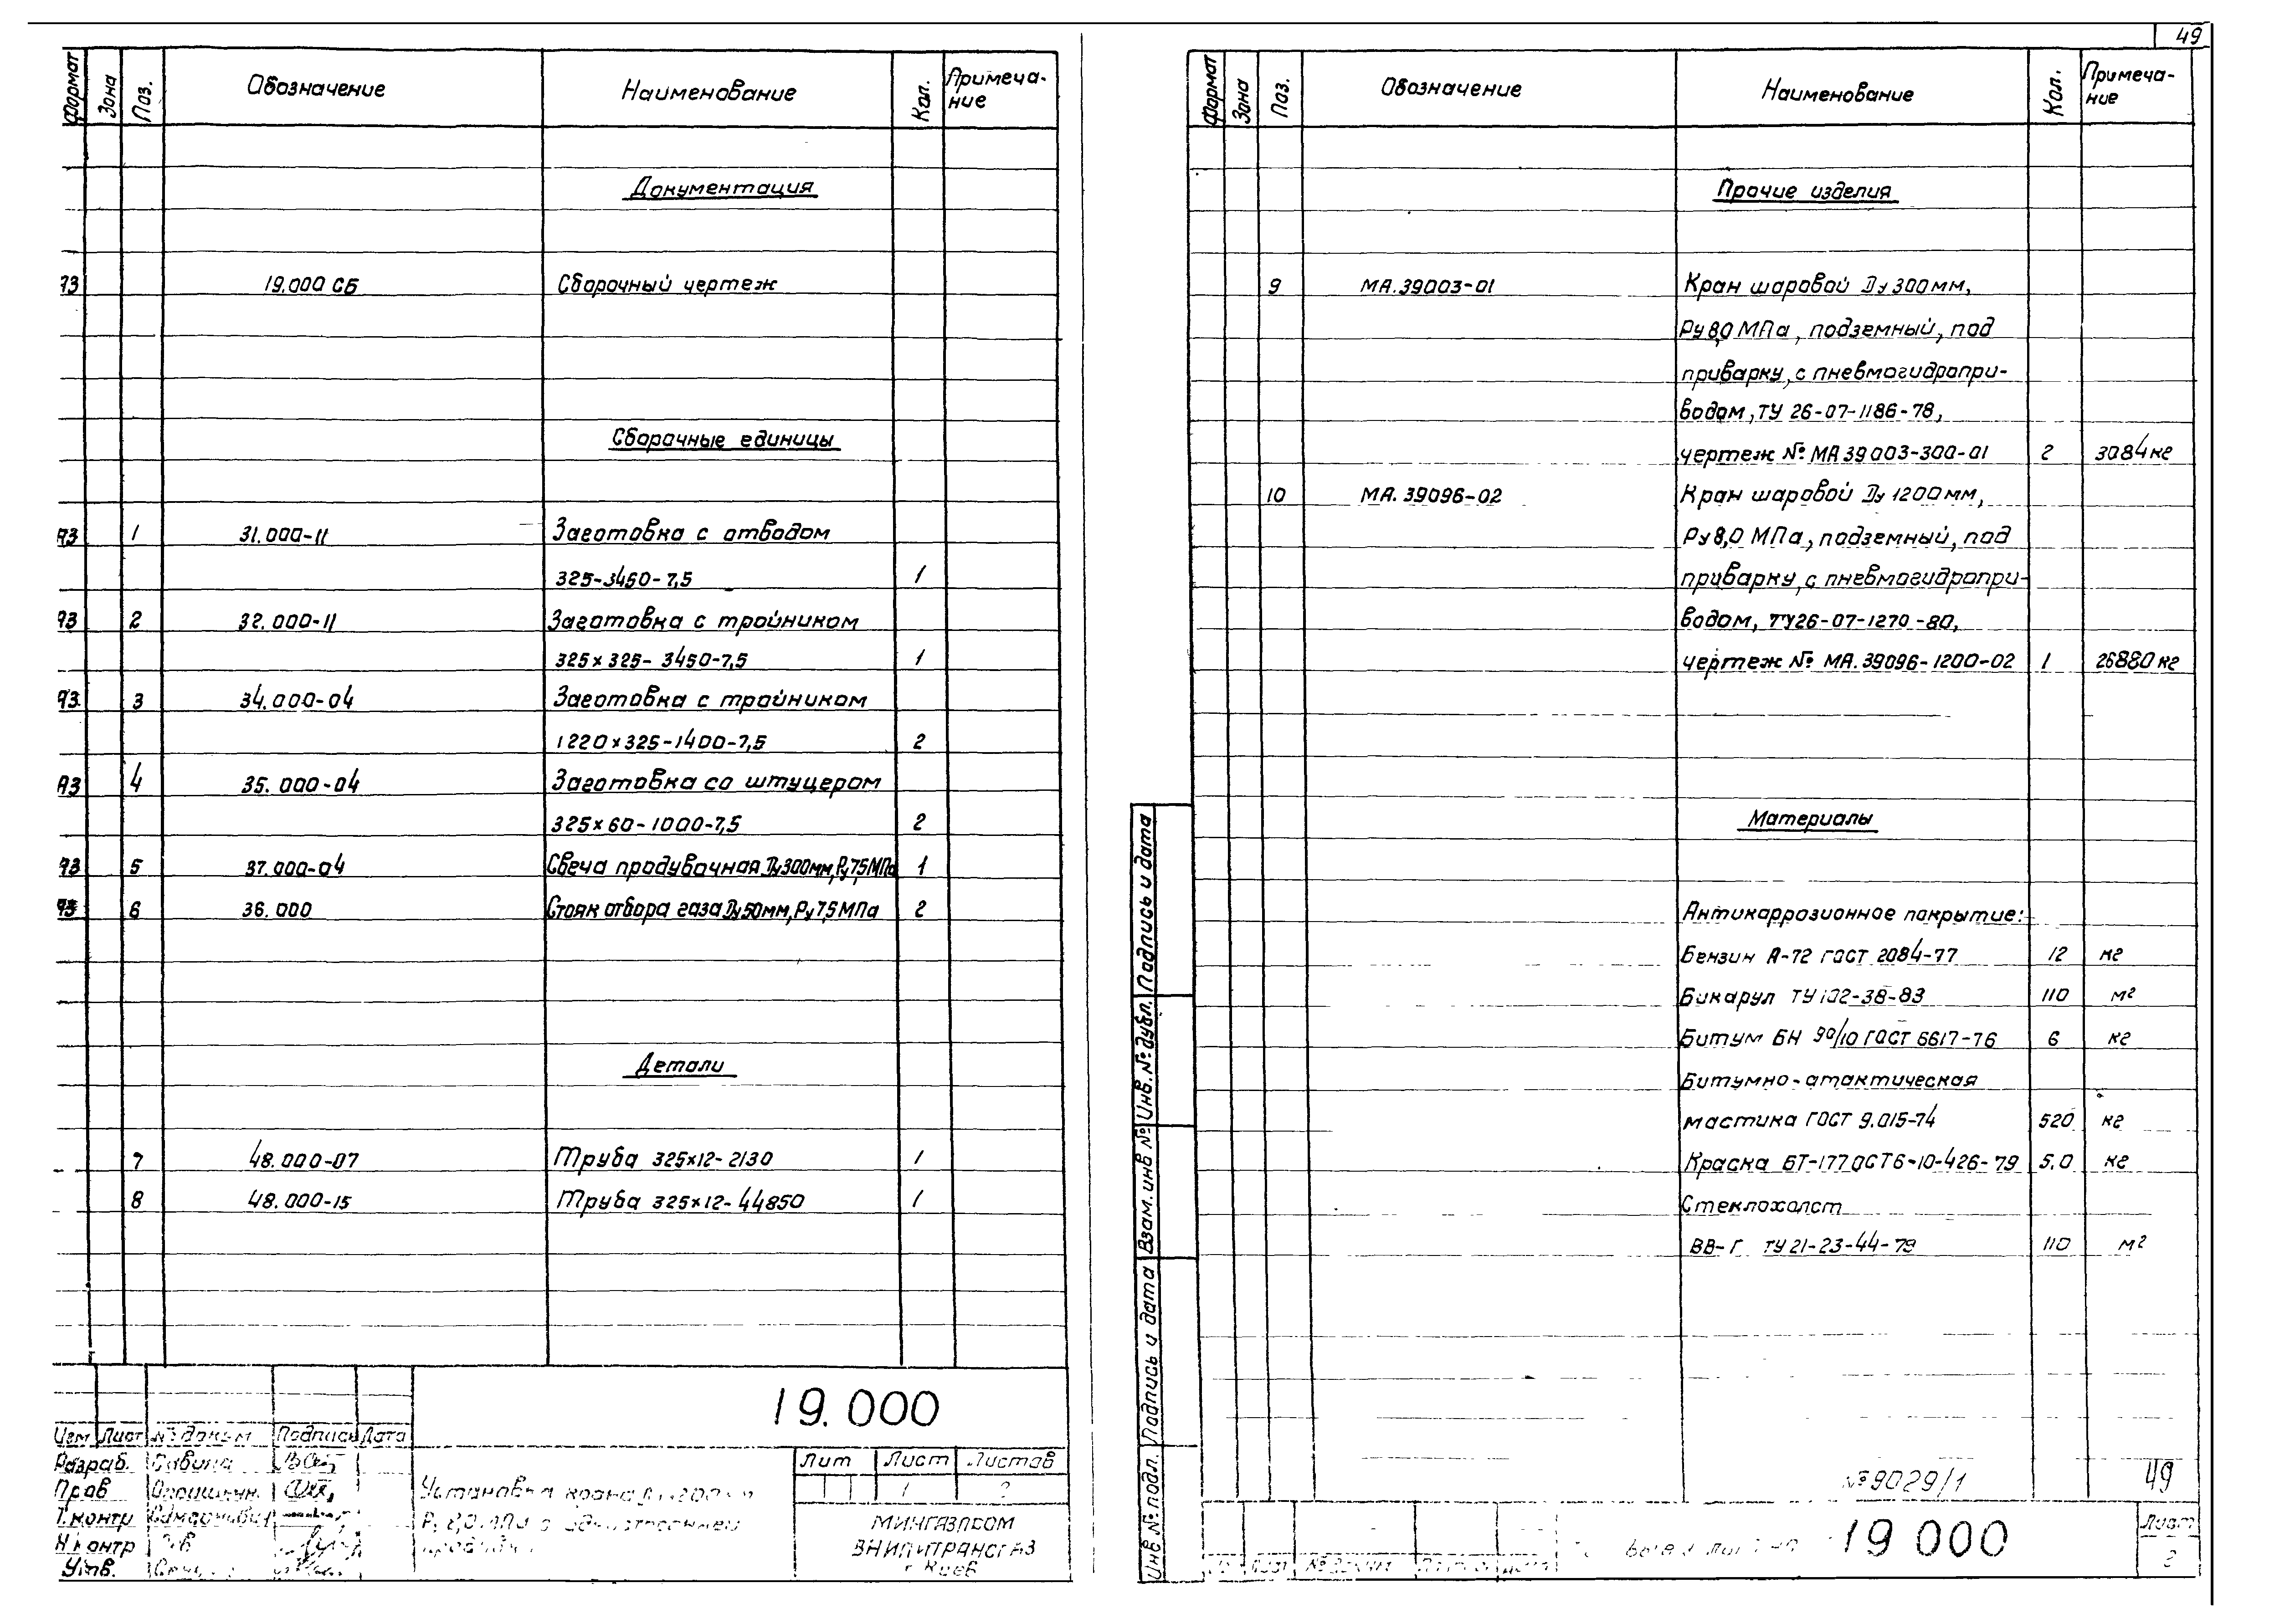 49
Формат Зона Поз. Обозначение Наименование Кол. Примеча-
ние
Документация
А3 19.000 СБ Сборочный чертеж
Сборочные единицы
А3 1 31.000-11 Заготовка с отводом
325-3450-7,5 1
А3 2 32.000-11 Заготовка с тройником
325×325-3450-7,5 1
А3 3 34.000-04 Заготовка с тройником
1220×325-1400-7,5 2
А3 4 35.000-04 Заготовка со штуцером
325×60-1000-7,5 2
А3 5 37.000-04 Свеча продувочная Ду300мм, Ру7,5МПа 1
А3 6 36.000 Стояк отбора газа Ду50мм, Ру7,5МПа 2
Детали
7 48.000-07 Труба 325×12-2130 1
8 48.000-15 Труба 325×12-44850 1
19.000
Изм Лист № докум Подпись Дата
Разраб. Савина
Пров
Т.контр
Н.контр
Утв.
Установка крана
Лит Лист Листов
1 2
МИНГАЗПРОМ
ВНИПИТРАНСГАЗ
г. Киев
Формат Зона Поз. Обозначение Наименование Кол. Примеча-
ние
Прочие изделия
9 МА.39003-01 Кран шаровой Ду300мм,
Ру8,0 МПа, подземный, под
приварку, с пневмогидропри-
водом, ТУ 26-07-1186-78,
чертеж № МА39003-300-01 2 3084кг
10 МА.39096-02 Кран шаровой Ду 1200мм,
Ру8,0 МПа, подземный, под
приварку, с пневмогидропри-
водом, ТУ26-07-1270-80,
чертеж № МА.39096-1200-02 1 26880кг
Материалы
Антикоррозионное покрытие:
Бензин А-72 ГОСТ 2084-77 12 кг
Бикарул ТУ102-38-83 110 м²
Битум БН 90/10 ГОСТ 6617-76 6 кг
Битумно-атактическая
мастика ГОСТ 9.015-74 520 кг
Краска БТ-177 ОСТ6-10-426-79 5,0 кг
Стеклохолст
ВВ-Г ТУ21-23-44-79 110 м²
Инв. № подл. Подпись и дата Взам. инв № Инв. № дубл. Подпись и дата
№9029/1 49
19 000
Лист
2